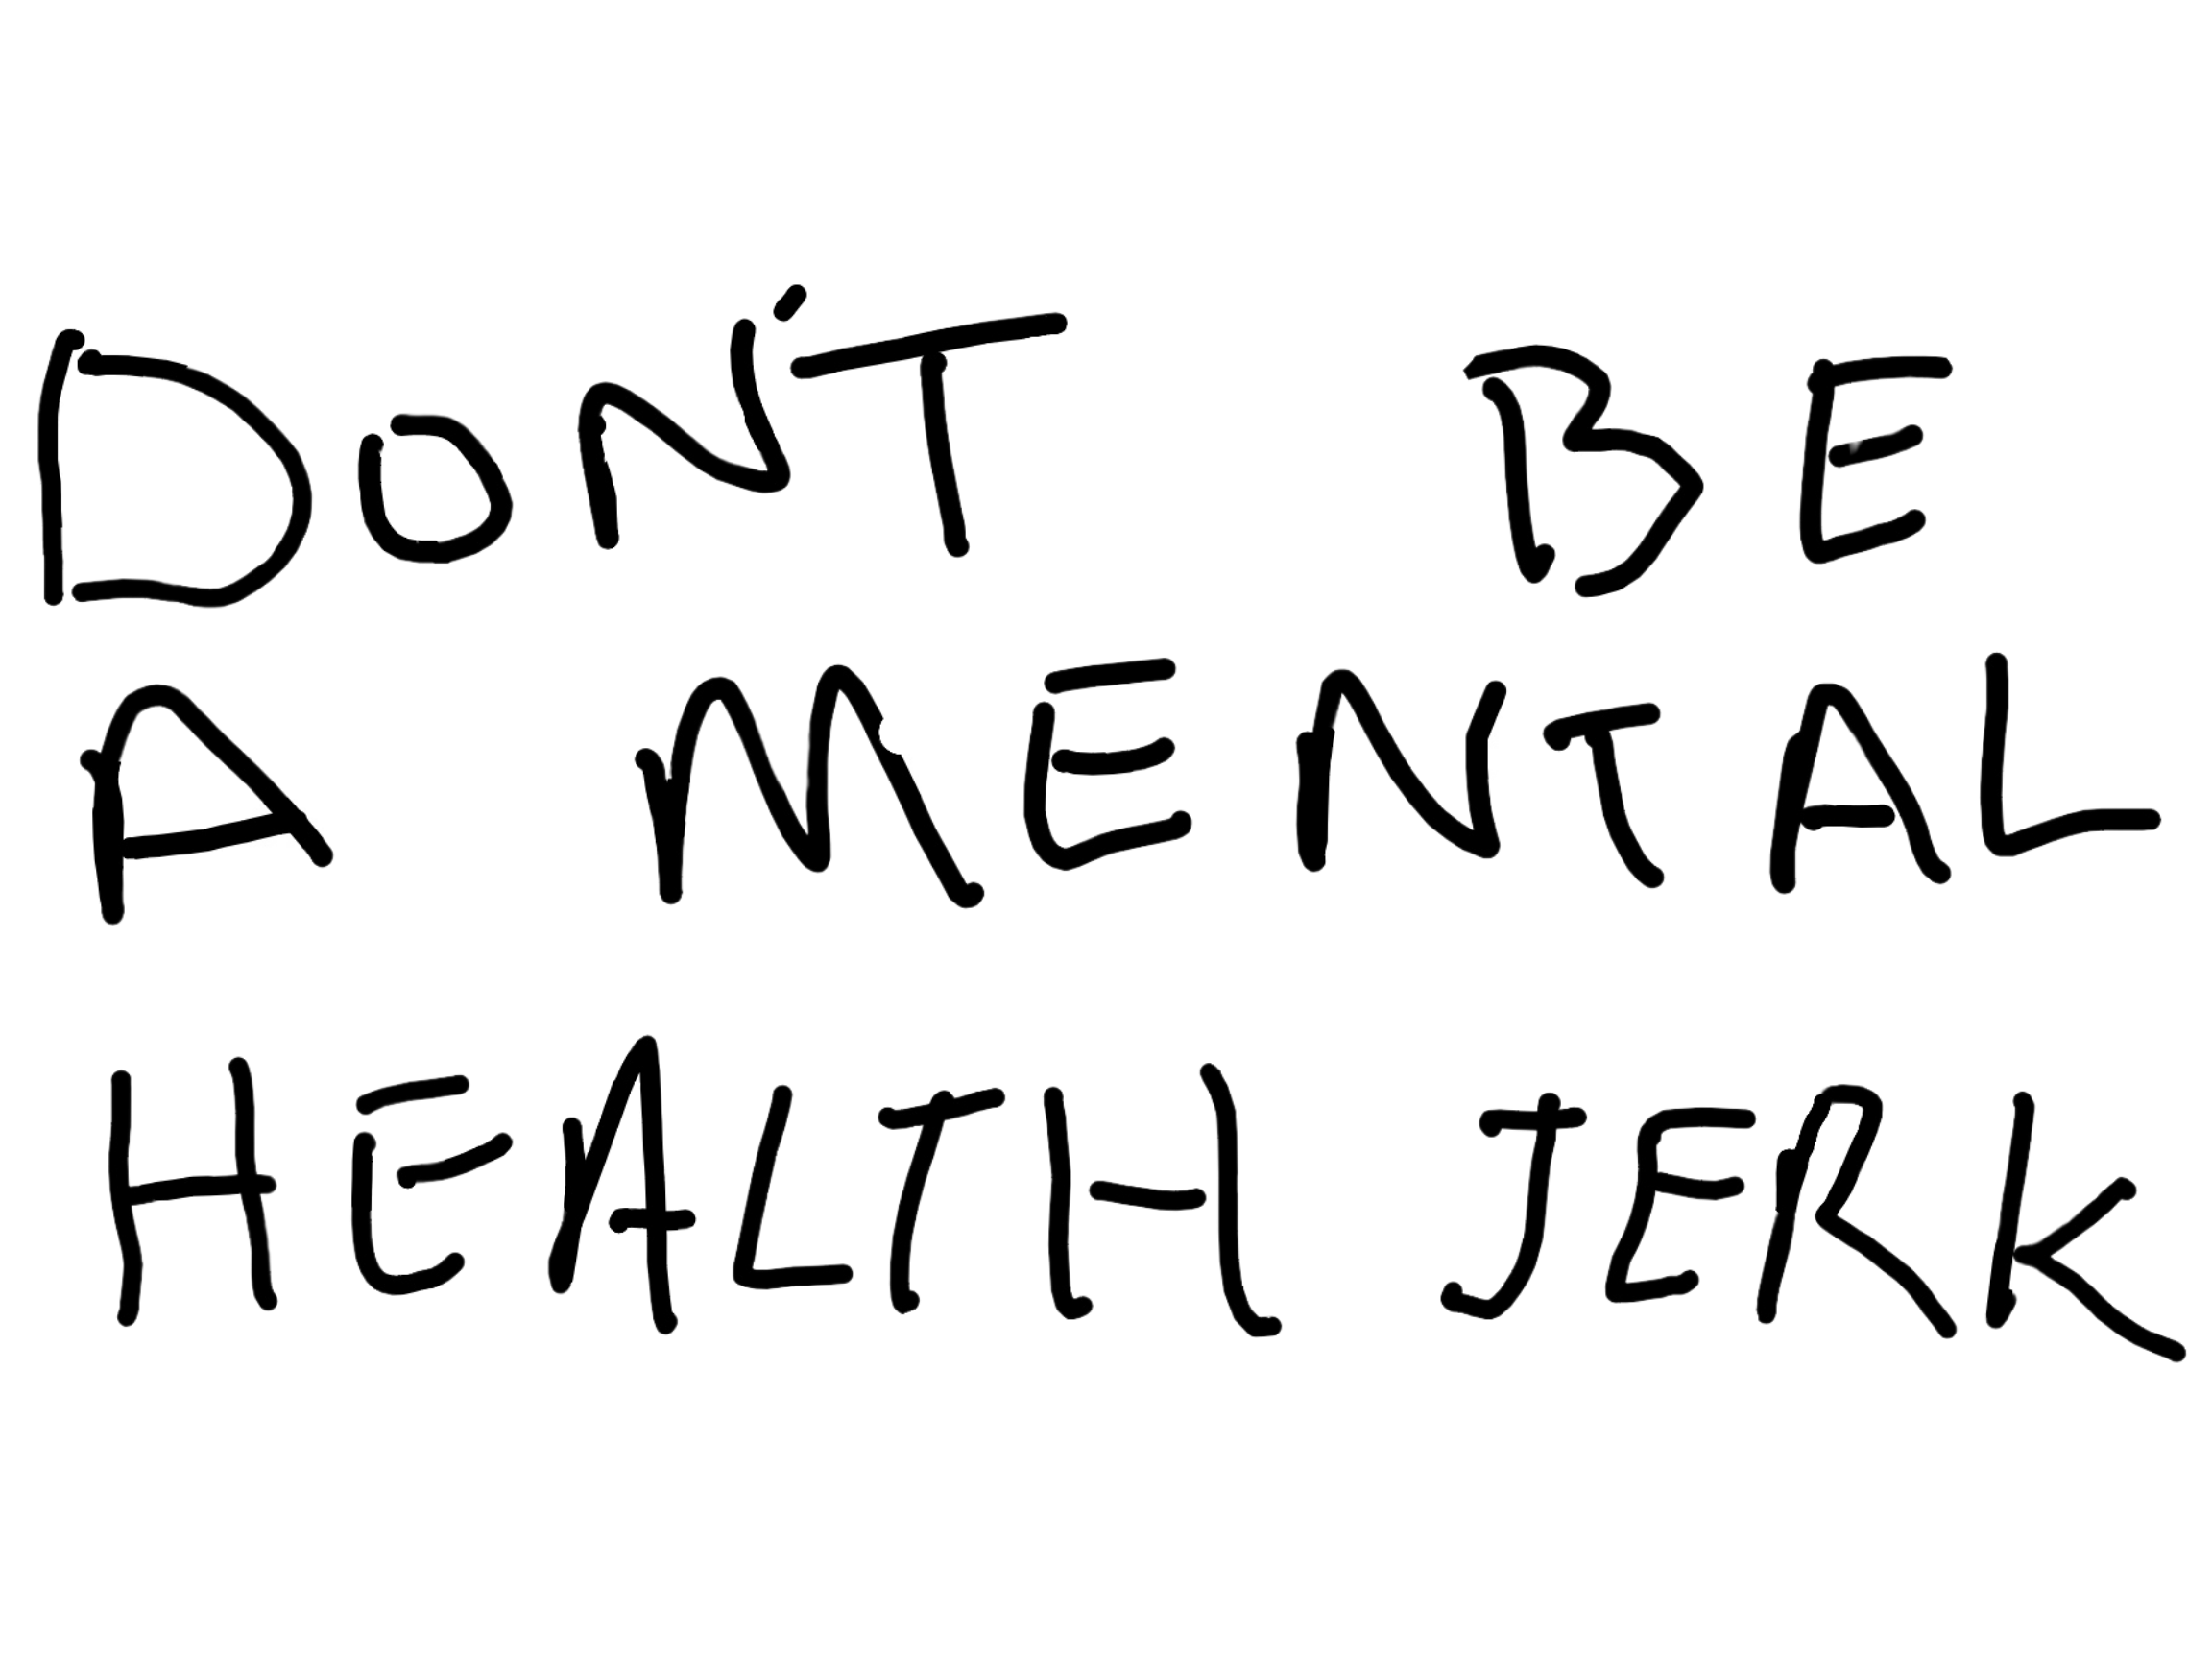 DON'T BE
A MENTAL
HEALTH JERK